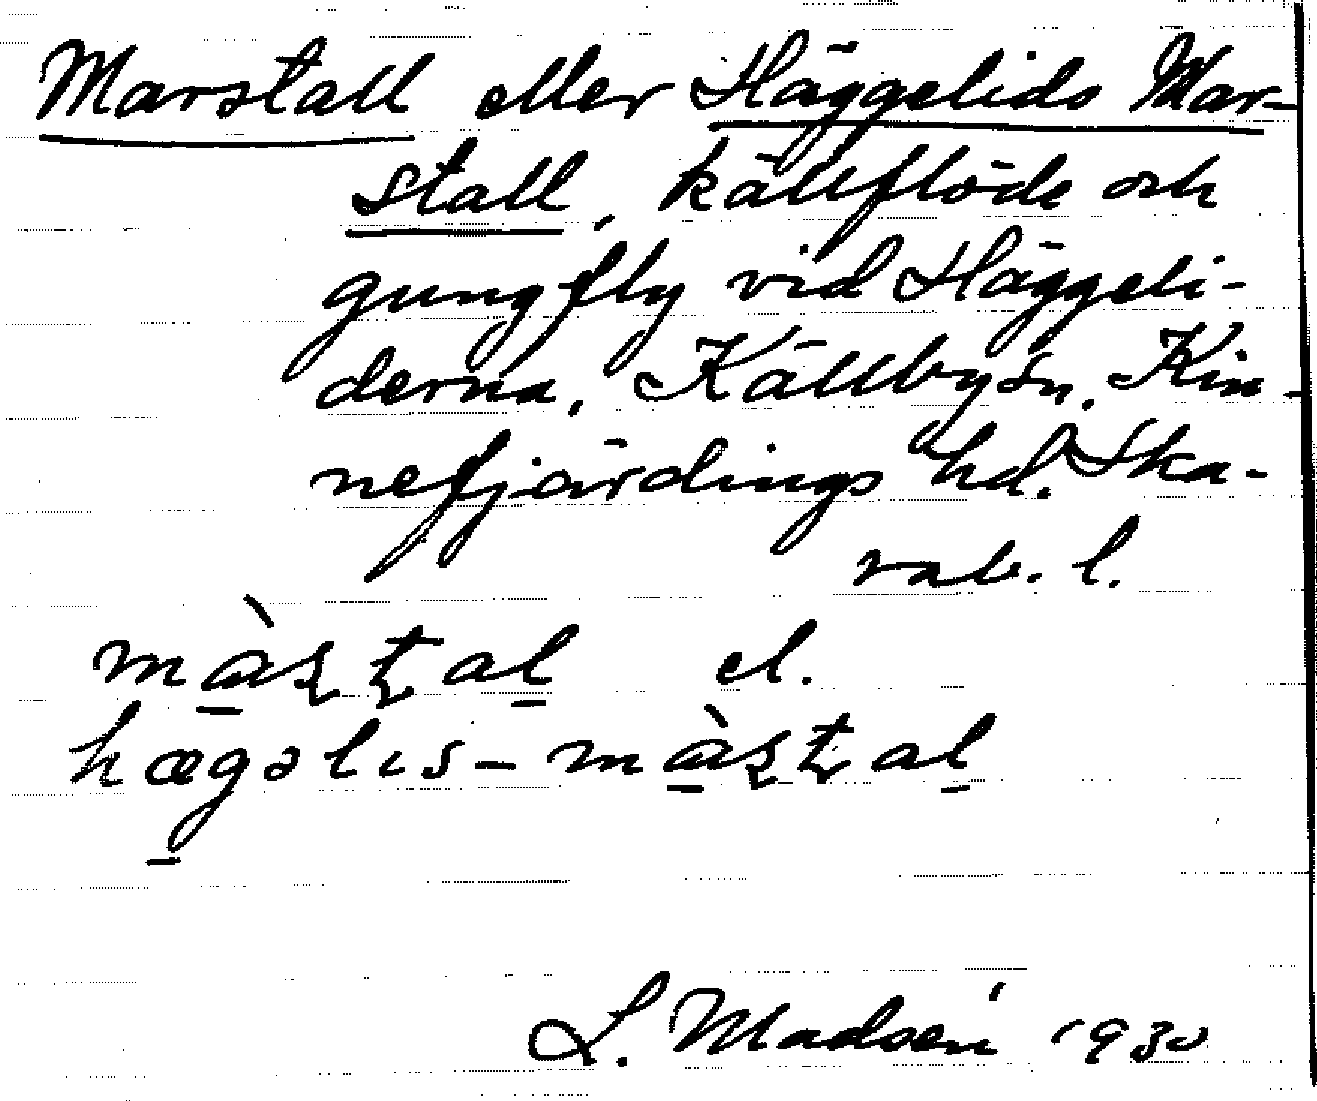 Marstall eller Häggelids Mar-
stall, källflöde och
gungfly vid Häggeli-
derna, Källby sn, Kin-
nefjärdings hd. Ska-
rab. l.
màʂʈal el.
hægəlis-màʂʈal
L. Madsén 1930